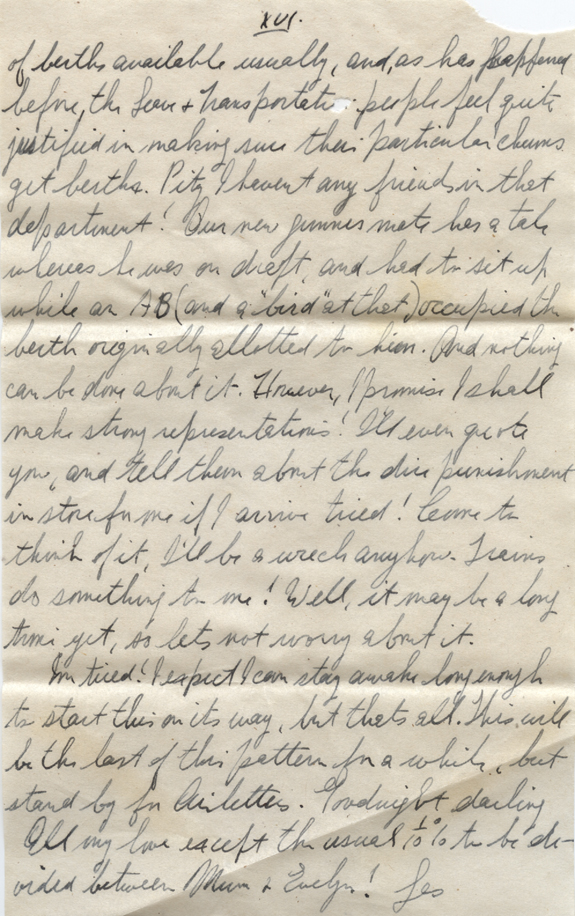 XVI.
of berths available usually, and, as has happened
before, the Leave & Transportation people feel quite
justified in making sure their particular chums
get berths. Pity I havent any friends in that
department! Our new gunners mate has a tale
whereas he was on draft, and had to sit up
while an AB (and a "bird" at that) occupied the
berth originally allotted to him. And nothing
can be done about it. However, I promise I shall
make strong representations! I'll even quote
you, and tell them about the dire punishment
in store for me if I arrive tired! Come to
think of it, I'll be a wreck anyhow. Trains
do something to me! Well, it may be a long
time yet, so lets not worry about it.
Im tired! I expect I can stay awake long enough
to start this on its way, but thats all. This will
be the last of this pattern for a while, but
stand by for Airletters. Goodnight darling
All my love except the usual 1/10 % to be di-
vided between Mum & Evelyn! Les